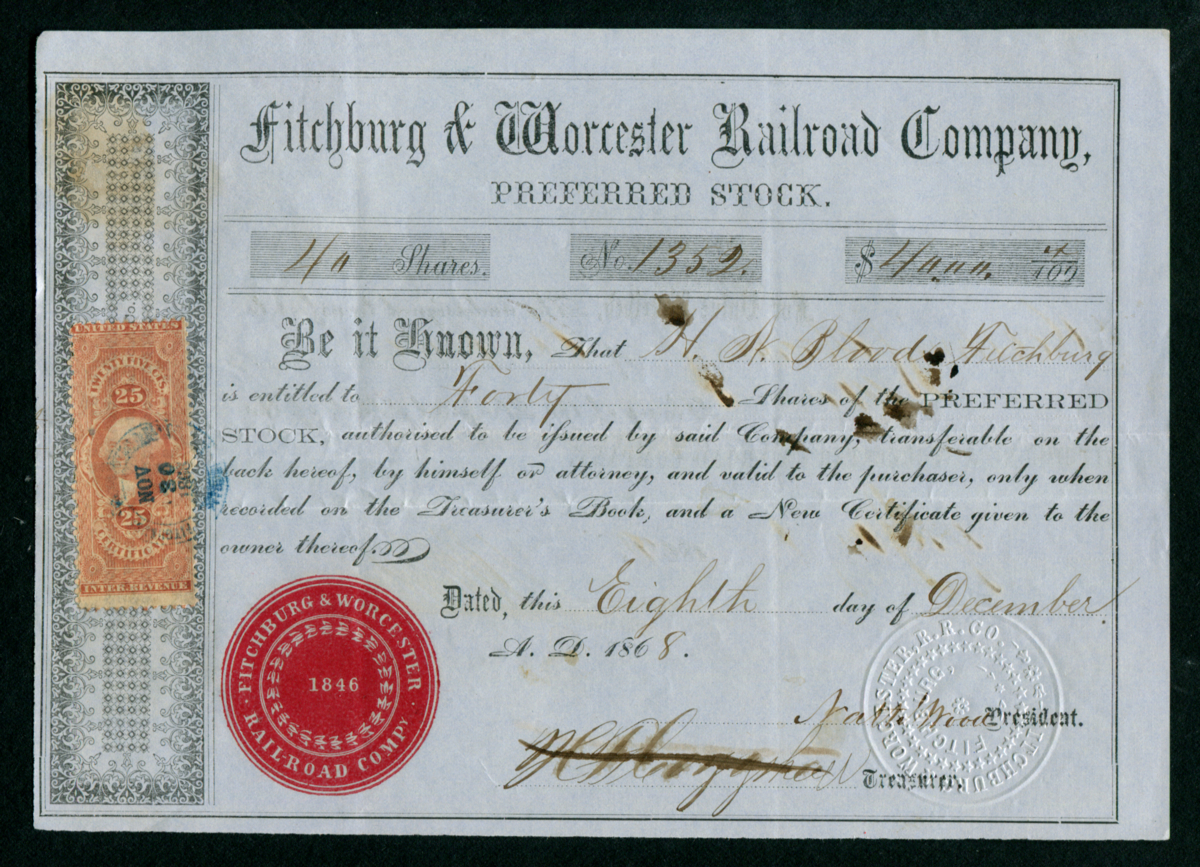 Fitchburg & Worcester Railroad Company,
PREFERRED STOCK.
40 Shares. No. 1352. $4000. /100
Be it Known, That H. A. Blood, Fitchburg
is entitled to Forty Shares of the PREFERRED
STOCK, authorised to be issued by said Company, transferable on the
back hereof, by himself or attorney, and valid to the purchaser, only when
recorded on the Treasurer's Book, and a New Certificate given to the
owner thereof.
Dated, this Eighth day of December
A. D. 1868.
Nath' Wood President.
Treasurer.
UNITED STATES
TWENTY FIVE CTS.
25
NOV
30
25
CERTIFICATE
INTER. REVENUE
FITCHBURG & WORCESTER
1846
RAILROAD COMPY
FITCHBURG WORCESTER R.R. CO.